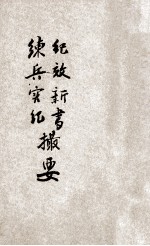 紀效新書
練兵實紀撮要